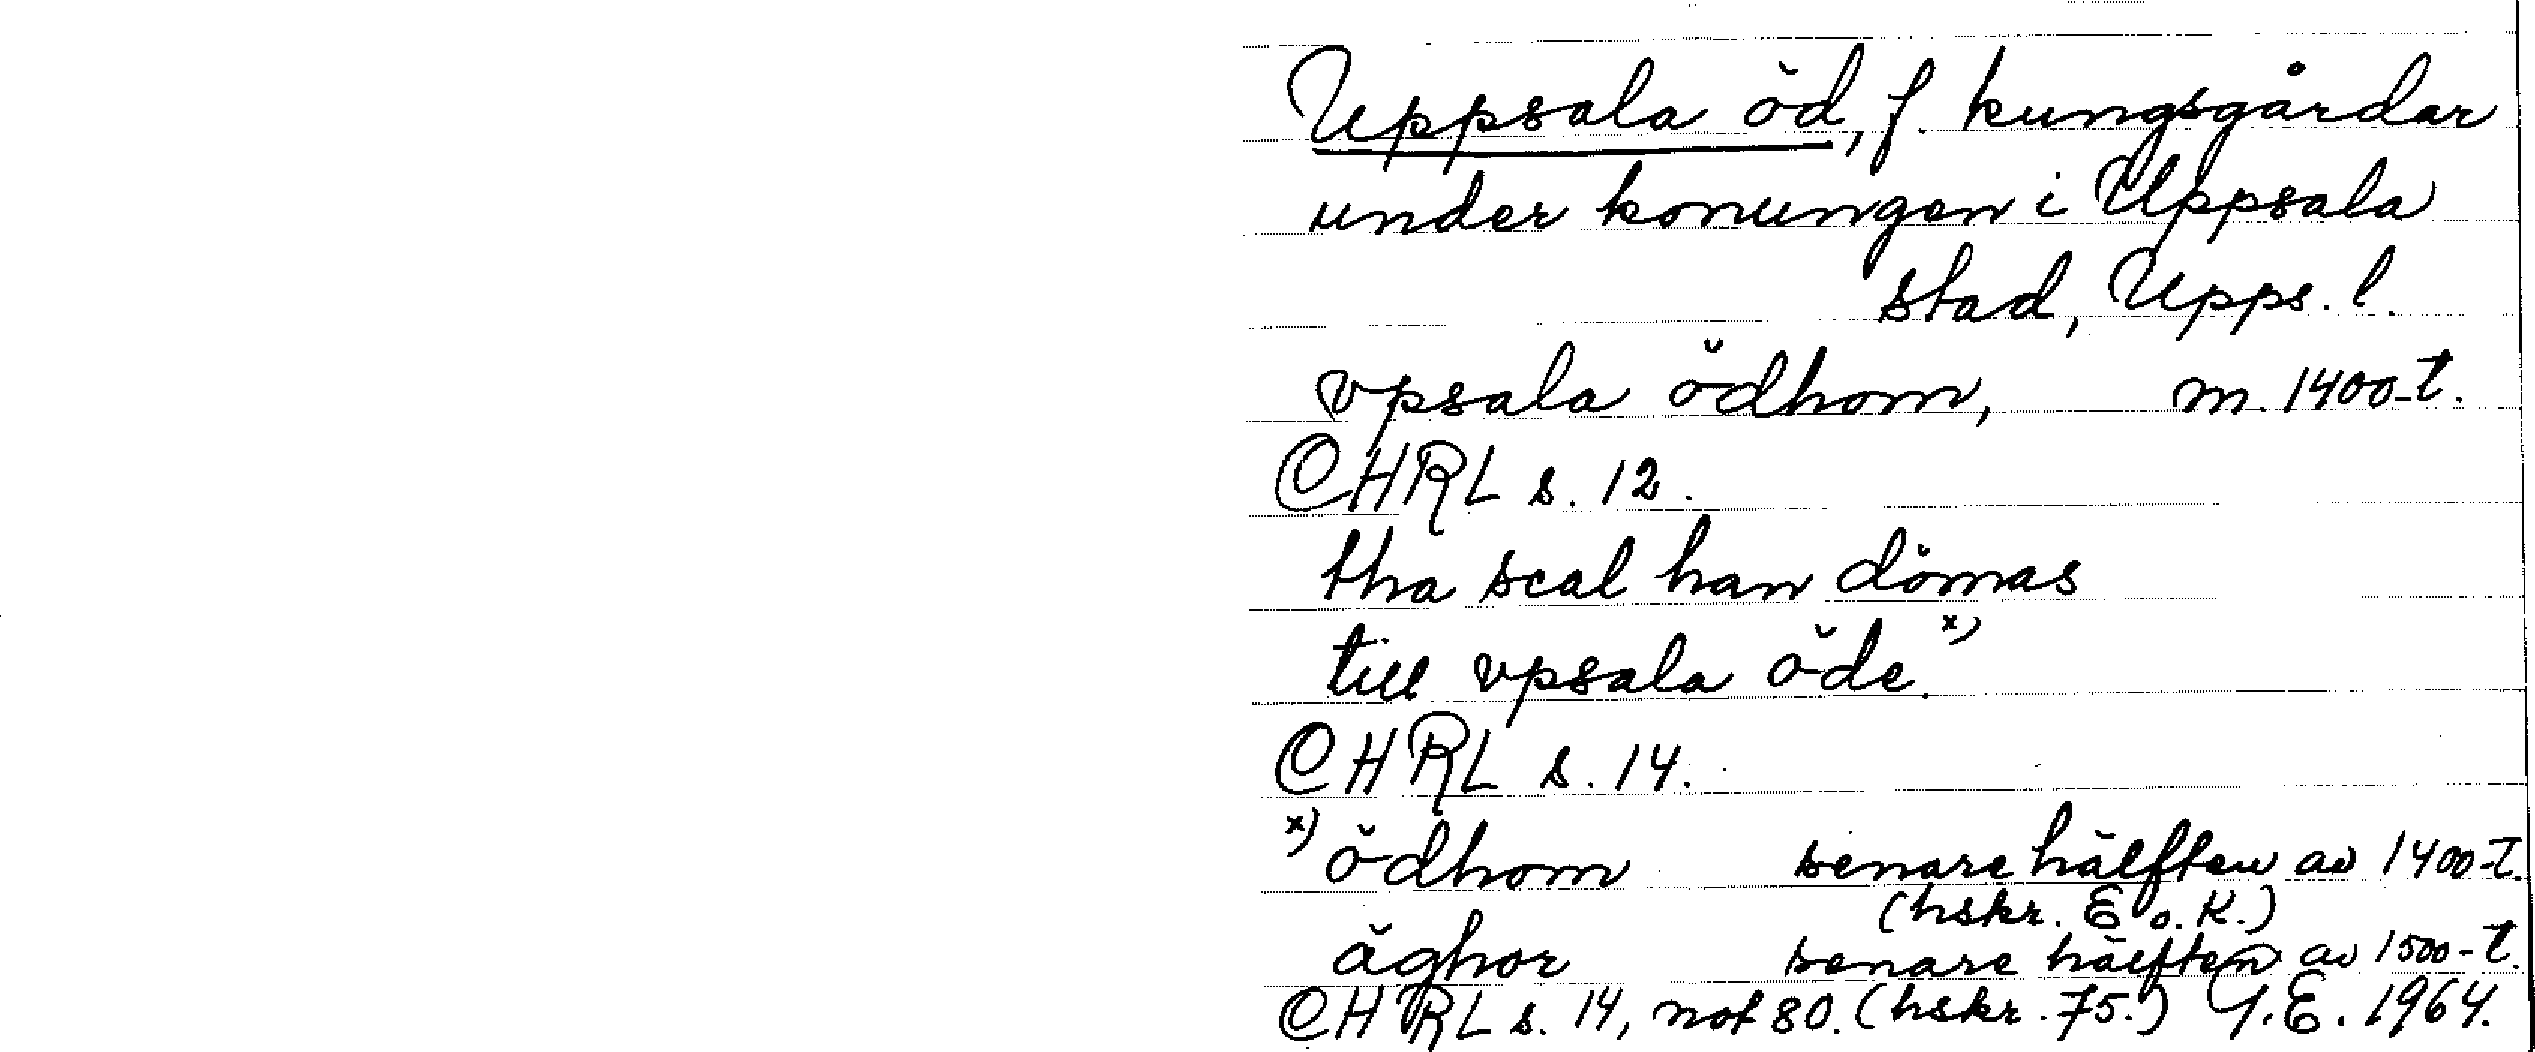 Uppsala öd, f. kungsgårdar
under konungen i Uppsala
stad, Upps. l.
vpsala ödhom, m. 1400-t.
CHRL s. 12.
tha scal han dömas
till vpsala öde. x)
CHRL s. 14.
x) ödhom senare hälften av 1400-t.
(hskr. E o. K.)
äghor senare hälften av 1500-t.
CHRL s. 14, not 80. (hskr. 75.) G.E. 1964.